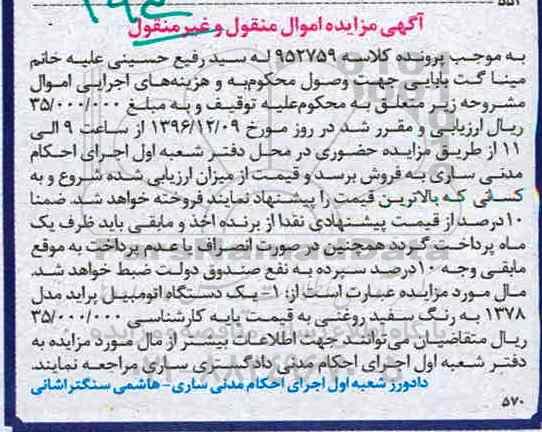 ۵۵۲
آگهی مزایده اموال منقول و غیر منقول
به موجب پرونده کلاسه ۹۵۲۷۵۹ له سید رفیع حسینی علیه خانم
مینا گت بابایی جهت وصول محکوم‌به و هزینه‌های اجرایی اموال
مشروحه زیر متعلق به محکوم‌علیه توقیف و به مبلغ ۳۵/۰۰۰/۰۰۰
ریال ارزیابی و مقرر شد در روز مورخ ۱۳۹۶/۱۲/۰۹ از ساعت ۹ الی
۱۱ از طریق مزایده حضوری در محل دفتر شعبه اول اجرای احکام
مدنی ساری به فروش برسد و قیمت از میزان ارزیابی شده شروع و به
کسانی که بالاترین قیمت را پیشنهاد نمایند فروخته خواهد شد. ضمنا
۱۰درصد از قیمت پیشنهادی نقدا از برنده اخذ و مابقی باید ظرف یک
ماه پرداخت گردد همچنین در صورت انصراف یا عدم پرداخت به موقع
مابقی وجه ۱۰درصد سپرده به نفع صندوق دولت ضبط خواهد شد.
مال مورد مزایده عبارت است از: ۱- یک دستگاه اتومبیل پراید مدل
۱۳۷۸ به رنگ سفید روغنی به قیمت پایه کارشناسی ۳۵/۰۰۰/۰۰۰
ریال متقاضیان می‌توانند جهت اطلاعات بیشتر از مال مورد مزایده به
دفتر شعبه اول اجرای احکام مدنی دادگستری ساری مراجعه نمایند.
دادورز شعبه اول اجرای احکام مدنی ساری- هاشمی سنگتراشانی
۵۷۰